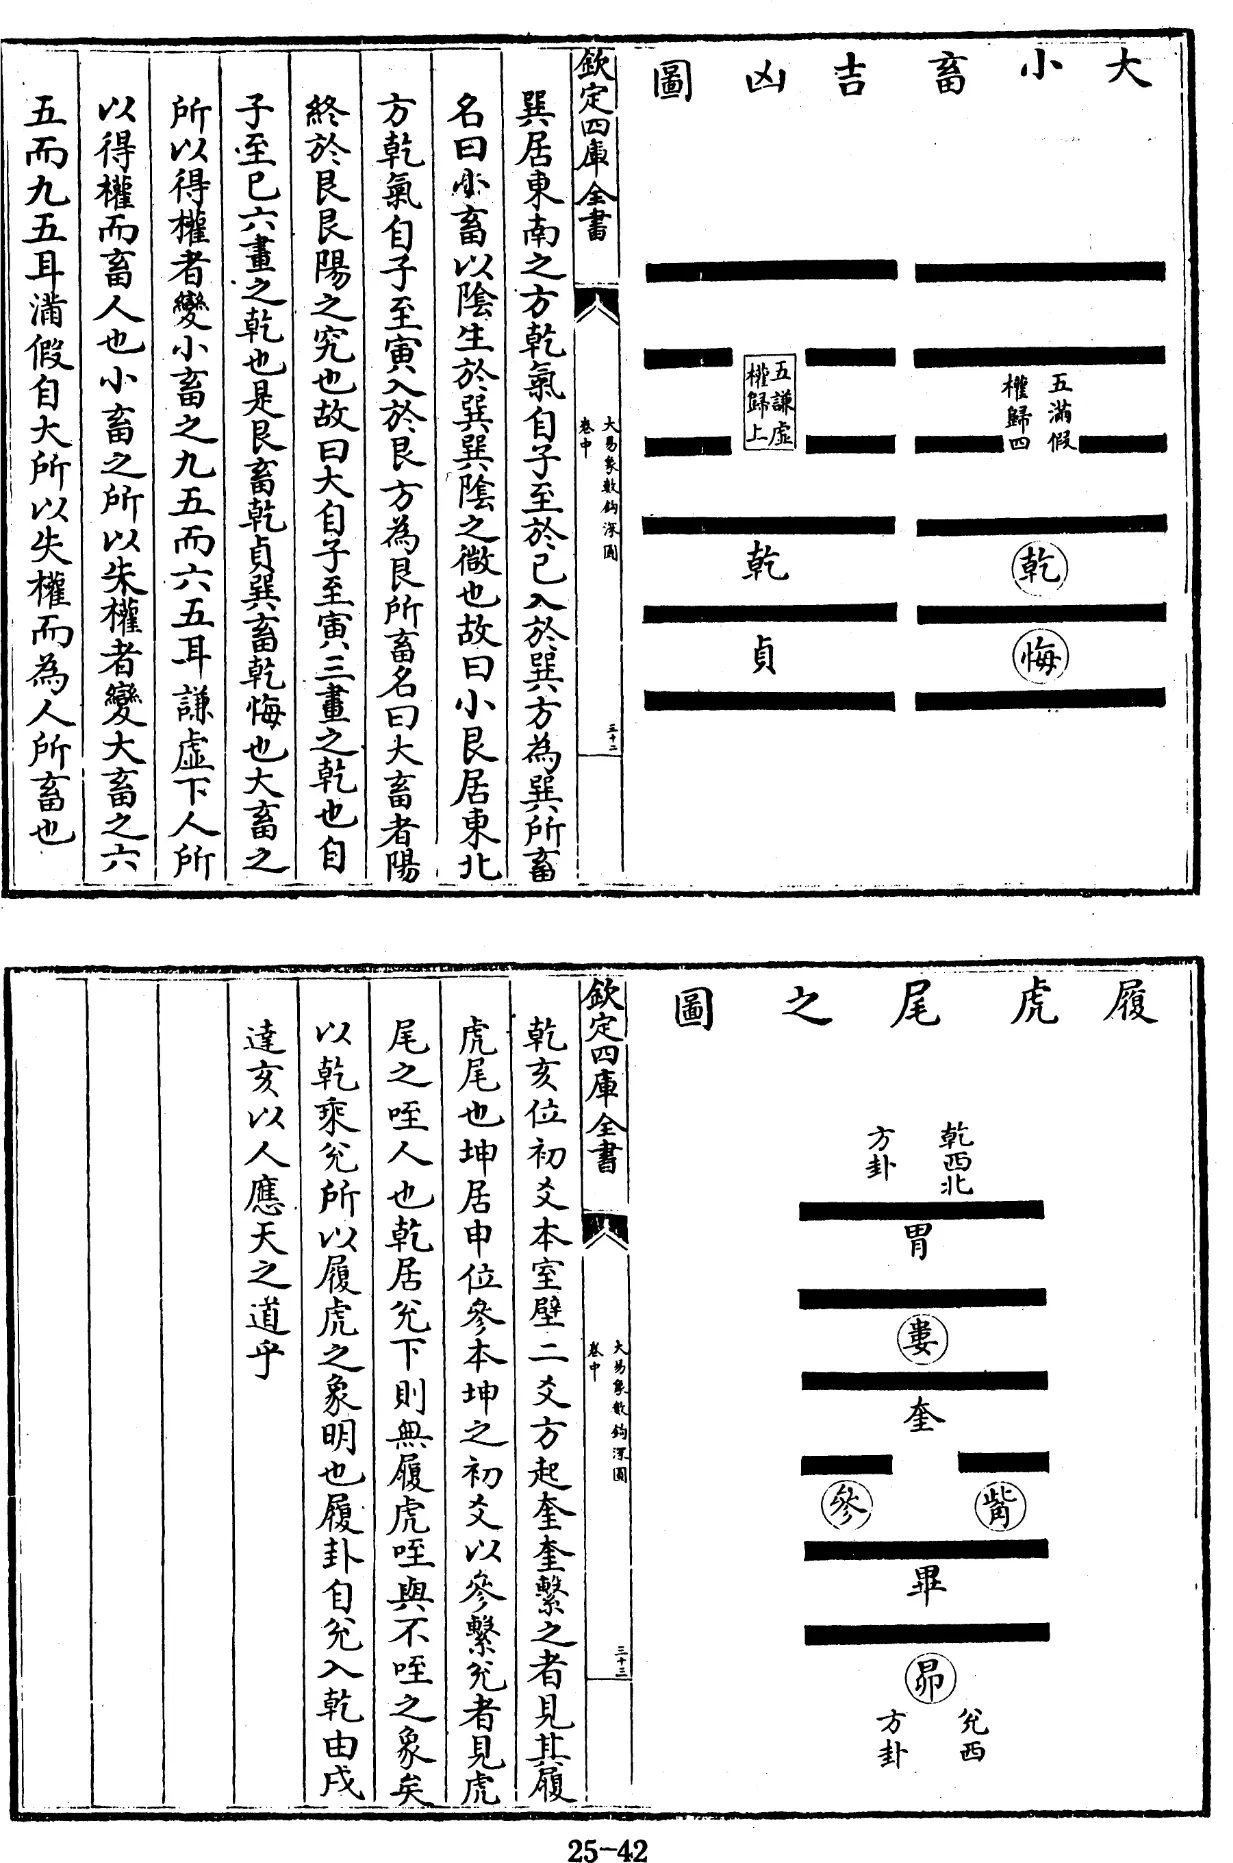 大小畜吉凶圖
五滿假
權歸四
乾
悔
五謙虛
權歸上
乾
貞
欽定四庫全書
大易象數鈎深圖
卷中
三十二
巽居東南之方乾氣自子至於巳入於巽方為巽所畜
名曰小畜以陰生於巽巽陰之微也故曰小艮居東北
方乾氣自子至寅入於艮方為艮所畜名曰大畜者陽
終於艮艮陽之究也故曰大自子至寅三畫之乾也自
子至巳六畫之乾也是艮畜乾貞巽畜乾悔也大畜之
所以得權者變小畜之九五而六五耳謙虛下人所
以得權而畜人也小畜之所以失權者變大畜之六
五而九五耳滿假自大所以失權而為人所畜也
履虎尾之圖
乾西北
方卦
胃
婁
奎
觜
參
畢
昴
兌西
方卦
欽定四庫全書
大易象數鈎深圖
卷中
三十三
乾亥位初爻本室壁二爻方起奎奎繫之者見其履
虎尾也坤居申位參本坤之初爻以參繫兌者見虎
尾之咥人也乾居兌下則無履虎咥與不咥之象矣
以乾乘兌所以履虎之象明也履卦自兌入乾由戌
達亥以人應天之道乎
25-42